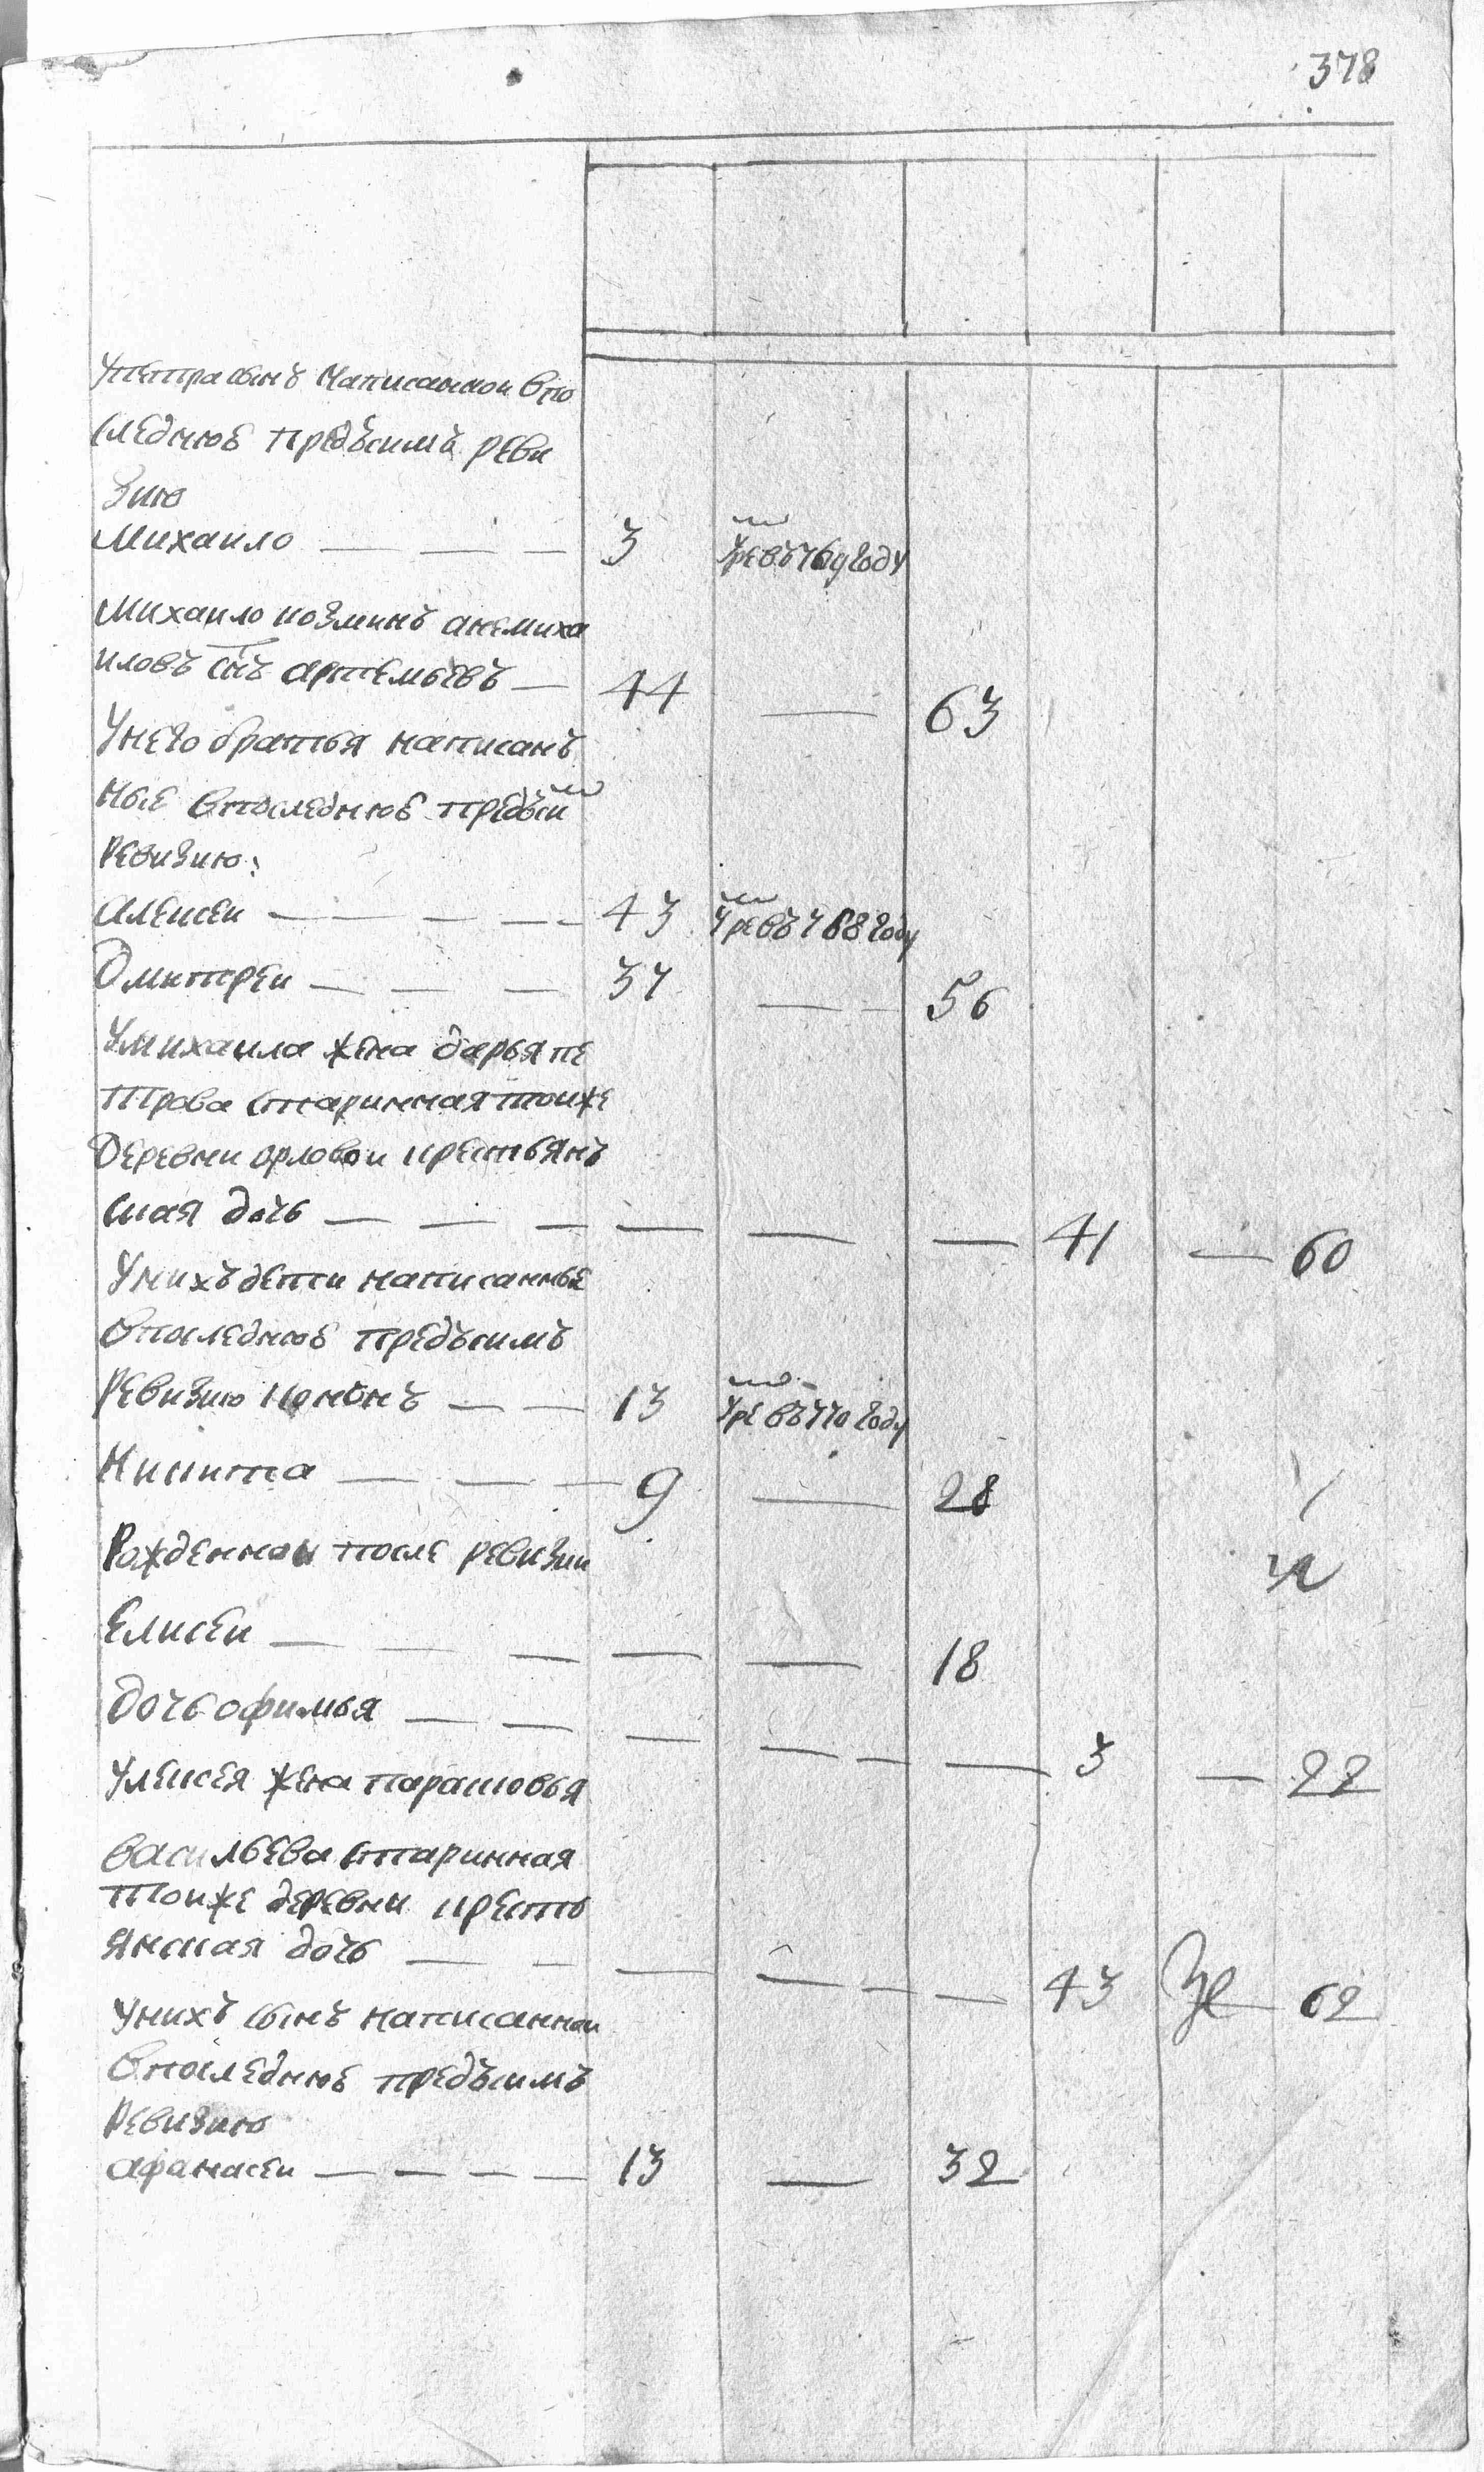 378
Упетра сынъ написаннои впо
следнюю предъсимъ реви
зию
Михаило — — — 3 умре въ 769 году
Михаило козминъ анемиха
иловъ снъ артемьевъ — 44 — 63
Унего братья написанъ
ные впоследнюю предъсим
ревизию:
алексеи — — — — 43 умре въ 768 году
Дмитреи — — — 37 — — 56
Умихаила жена дарья пе
трова старинная тоиже
Деревни орловои крестьянъ
ская дочь — — — — — — 41 — 60
Унихъ дети написанные
впоследнюю предъсимъ
ревизию кононъ — — 13 умре въ 770 году
Никита — — — 9 — 28
Рожденнои после ревизии
Елисеи — — — — — 18
дочь офимья — — — — — — 3 — 22
Улексея жена парасковья
васильева старинная
тоиже деревни кресть
янская дочь — — — — — — 43 — 62
унихъ сынъ написаннои
впоследнюю предъсимъ
ревизию
афанасеи — — — — 13 — 32